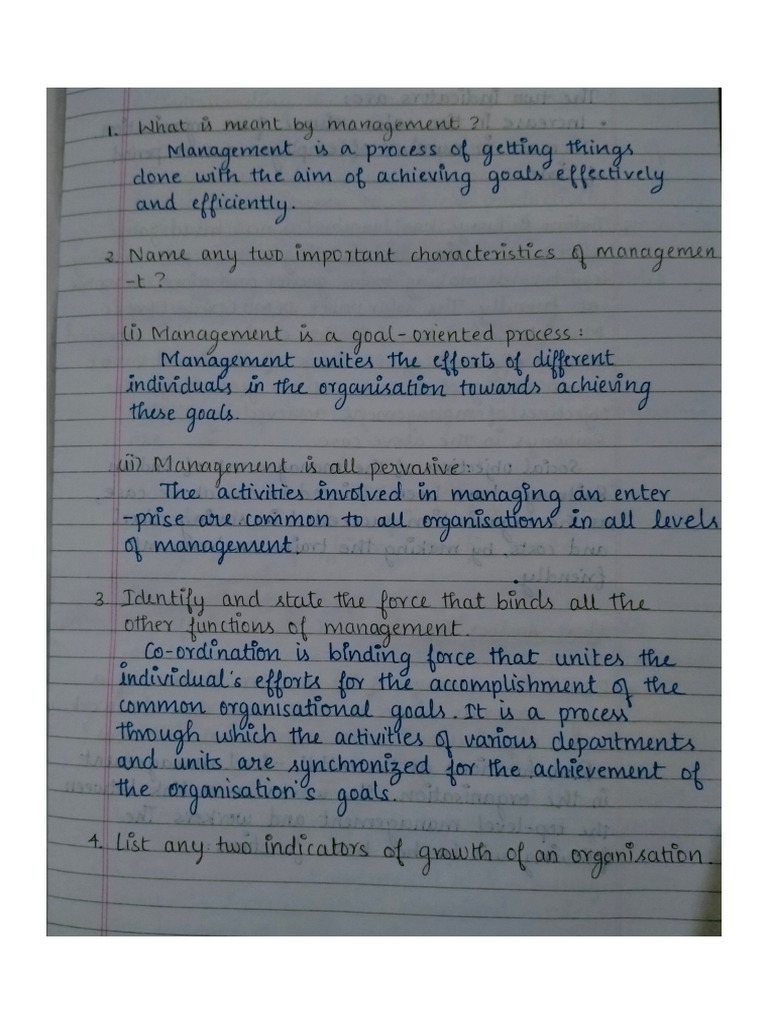 1. What is meant by management ?
Management is a process of getting things
done with the aim of achieving goals effectively
and efficiently.
2. Name any two important characteristics of managemen
-t ?
(i) Management is a goal-oriented process :
Management unites the efforts of different
individuals in the organisation towards achieving
these goals.
(ii) Management is all pervasive :
The activities involved in managing an enter
-prise are common to all organisations in all levels
of management.
3. Identify and state the force that binds all the
other functions of management.
Co-ordination is binding force that unites the
individual's efforts for the accomplishment of the
common organisational goals. It is a process
through which the activities of various departments
and units are synchronized for the achievement of
the organisation's goals.
4. List any two indicators of growth of an organisation.